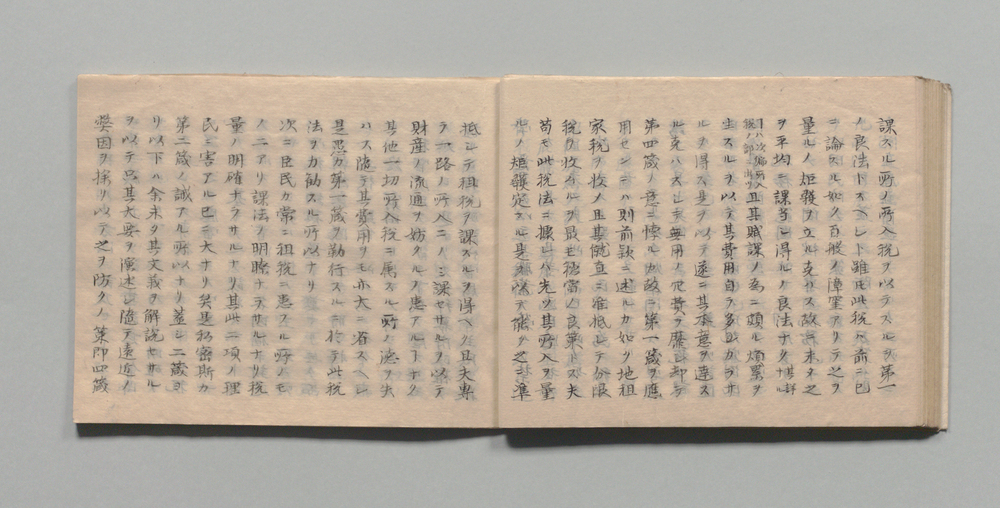 課スル所ノ所入税ヲ以テスルヲ第一
ノ良法トスヘシト雖㆑此税ハ前ニ已
ニ論スル如ク百般ノ障害アリテ之ヲ
量ルノ矩矱ヲ立ル克ハス故ニ未タ之
ヲ平均ニ課当シ得ルノ良法ナク
且其賦課ノ為ニ頗ル煩累ヲ
生スルヲ以テ其費用自ラ多カラサ
ルヲ得ス是ヲ以テ遂ニ其本意ヲ達ス
ル克ハスシテ無用ノ冗費ヲ醸シ却テ
第四箴ノ意ニ悖ル故ニ第一箴ヲ應
用センニハ則前欵ニ述ルカ如ク地租
家税ヲ收メ且其僦直ニ准抵シテ分限
税ヲ收ムルヲ最モ穏當ノ良策トス夫
苟モ此税法ニ據レハ先ツ其所入ヲ量
ルノ矩矱定ル是ヲ以テ能ク之ニ準
抵シテ租税ヲ課スルヲ得ヘク且夫専
ラ一路ノ所入ニノミ課セサルヲ以テ
財産ノ流通ヲ妨クルノ患アル㆒ナク
其他一切所入税ニ属スル所ノ
ハス随テ其費用リモ亦大ニ省スヘシ
是愚カ第一箴ヲ勤行スルニ於テ此税
法ヲカ勧スル所以ナリ
次ニ臣民カ常ニ租税ニ患フル所ノモ
ノ二アリ課法ノ明瞭ナラサルナリ税
量ノ明確ナラサルナリ其此二項ノ理
民ニ害アル已ニ大ナリ矣是私密斯カ
第二箴ノ誡ナル所以ナリ蓋シ二箴ヨ
リ以下ハ余未タ其文義ヲ解説セサル
ヲ以テ只其大要ヲ演述シ随テ遠近ノ
弊因ヲ採リ以テ之ヲ防クノ策即四箴